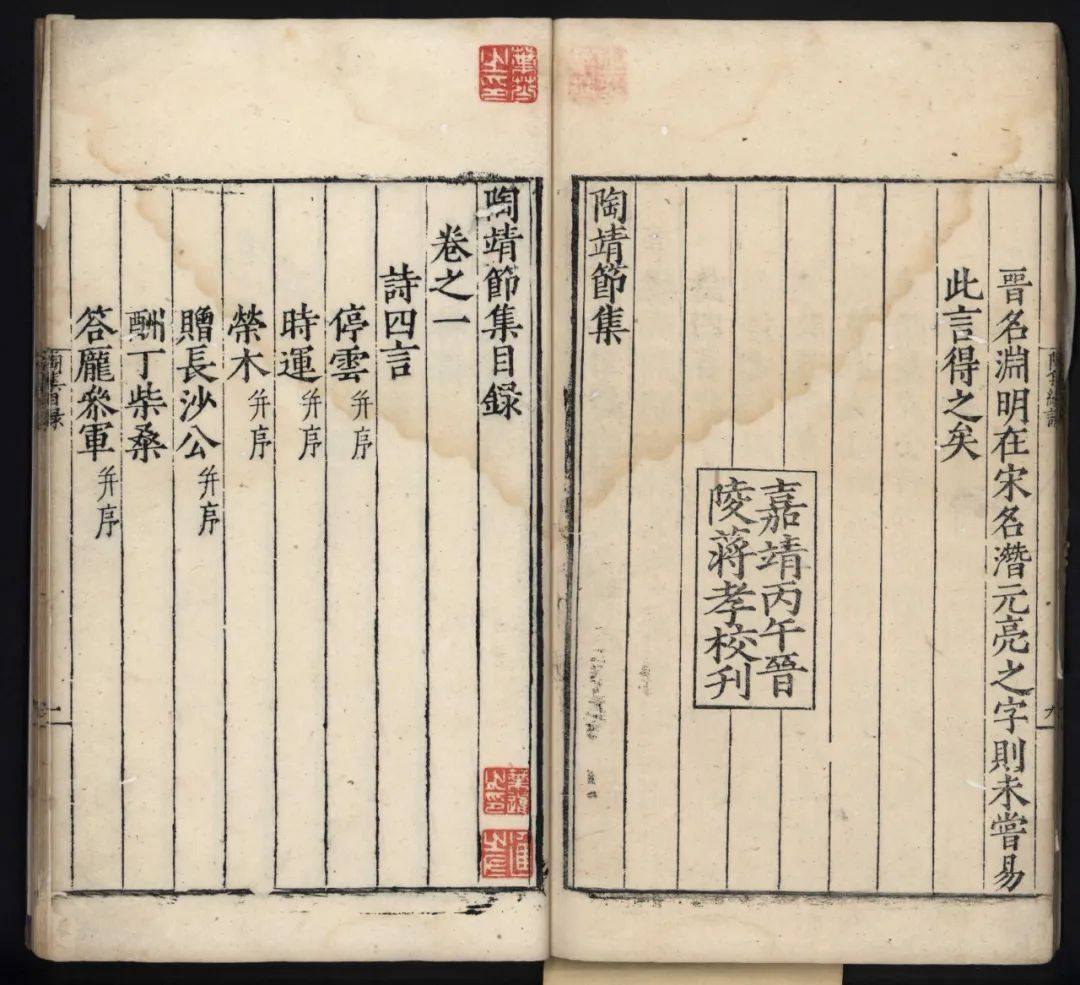 晉名淵明在宋名潛元亮之字則未嘗易
此言得之矣
嘉靖丙午晉
陵蔣孝校刋
陶靖節集
陶靖節集目録
卷之一
詩四言
停雲 并序
時運 并序
榮木 并序
贈長沙公 并序
酬丁柴桑
答龐參軍 并序